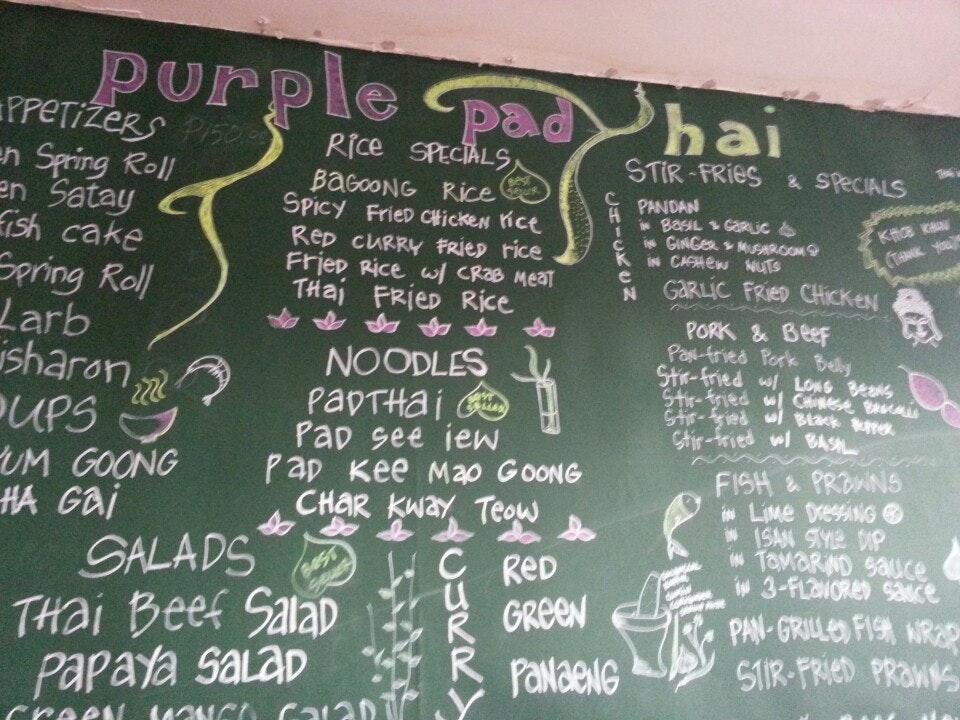 purple pad Thai
APPETIZERS P150.00
Spring Roll
Satay
fish cake
Spring Roll
Larb
SOUPS
YUM GOONG
KHA GAI
SALADS BEST SELLER
THAI BEEF SALAD
PAPAYA SALAD
GREEN MANGO SALAD
RICE SPECIALS
BAGOONG RICE BEST SELLER
SPICY FRIED CHICKEN RICE
RED CURRY FRIED RICE
FRIED RICE W/ CRAB MEAT
THAI FRIED RICE
NOODLES
PADTHAI BEST SELLER
PAD SEE IEW
PAD KEE MAO GOONG
CHAR KWAY TEOW
CURRY
RED
GREEN
PANAENG
STIR-FRIES & SPECIALS
CHICKEN
PANDAN
in BASIL & GARLIC
in GINGER & MUSHROOM
in CASHEW NUTS
GARLIC FRIED CHICKEN
PORK & BEEF
Pan-fried Pork Belly
Stir-fried w/ LONG BEANS
Stir-fried w/ CHINESE BROCOLLI
Stir-fried w/ BLACK PEPPER
Stir-fried w/ BASIL
FISH & PRAWNS
in LIME DRESSING
in ISAN STYLE DIP
in TAMARIND SAUCE
in 3-FLAVORED SAUCE
PAN-GRILLED FISH WRAP
STIR-FRIED PRAWNS
KHOB KHUN
(THANK YOU)